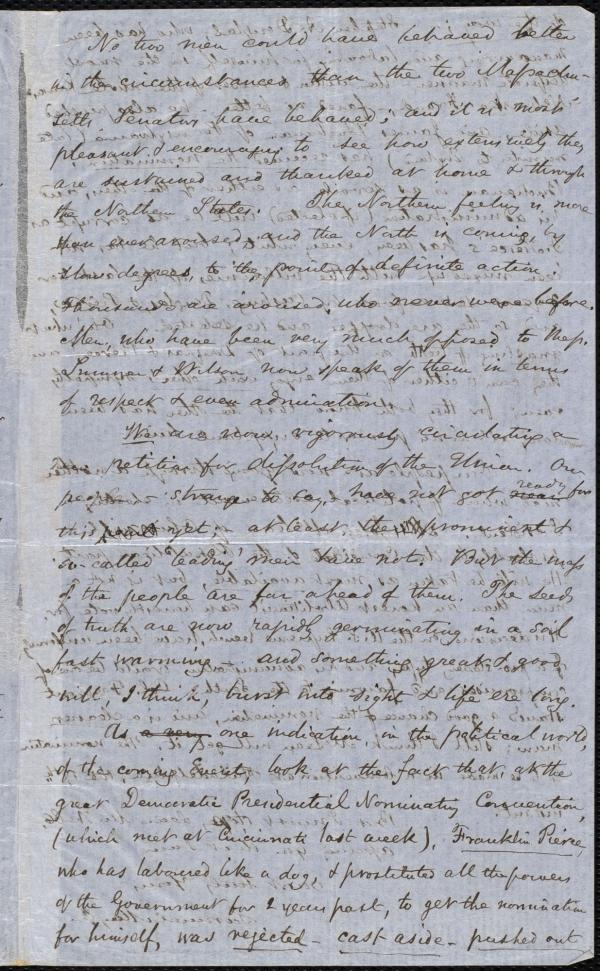 No two men could have behaved better
in the circumstances than the two Massachu-
setts Senators have behaved; and it is most
pleasant & encouraging to see how extensively they
are sustained and thanked at home & through
the Northern States. The Northern feeling is more
than ever aroused, and the North is coming, by
slow degrees, to the point of definite action.
Thousands are aroused, who never were before.
Men, who have been very much opposed to Messrs.
Sumner & Wilson now speak of them in terms
of respect & even admiration.
We are now vigorously circulating a
petition for dissolution of the Union. Our
people - strange to say, have not got ready for
this yet; at least, the prominent &
so-called 'leading' men have not. But the mass
of the people are far ahead of them. The seeds
of truth are now rapidly germinating in a soil
fast warming - and something great & good
will, I think, burst into sight & life ere long.
As a very one indication, in the political world,
of the coming Events, look at the fact that at the
great Democratic Presidential Nominating Convention,
(which met at Cincinnati last week), Franklin Pierce,
who has laboured like a dog, & prostituted all the powers
of the Government for 2 years past, to get the nomination
for himself, was rejected - cast aside - pushed out